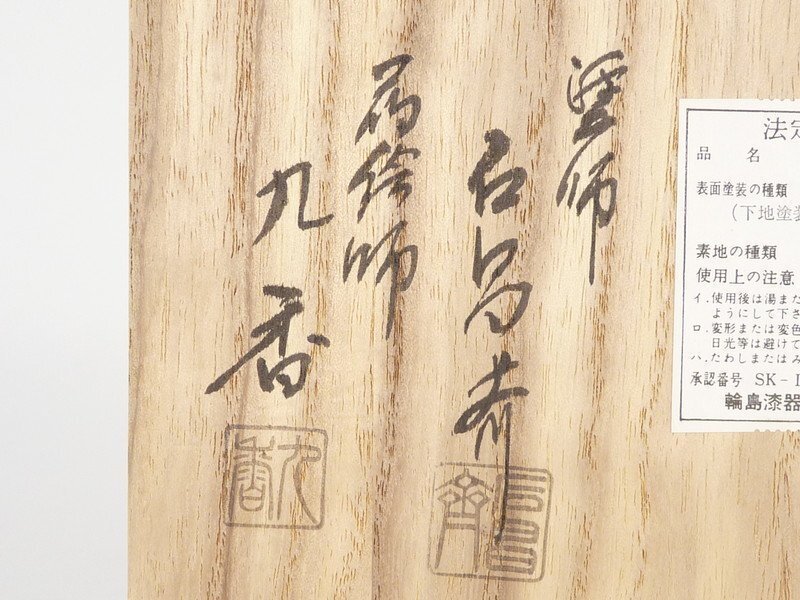 塗師
石昌斎
蒔絵師
九香
九香
法定
品 名
表面塗装の種類
(下地塗装
素地の種類
使用上の注意
イ.使用後は湯また
ようにして下さ
ロ.変形または変色
日光等は避けて
ハ.たわしまたはみ
承認番号 SK-
輪島漆器